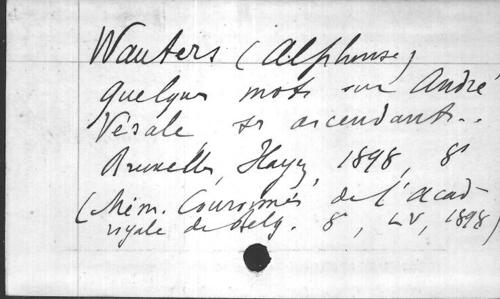 Wauters (Alphonse)
Quelques mots sur André
Vésale, ses ascendants..
Bruxelles, Hayez, 1898, 8°
(Mém. Couronnés de l'Acad.
royale de Belg. 8°, LV, 1898)